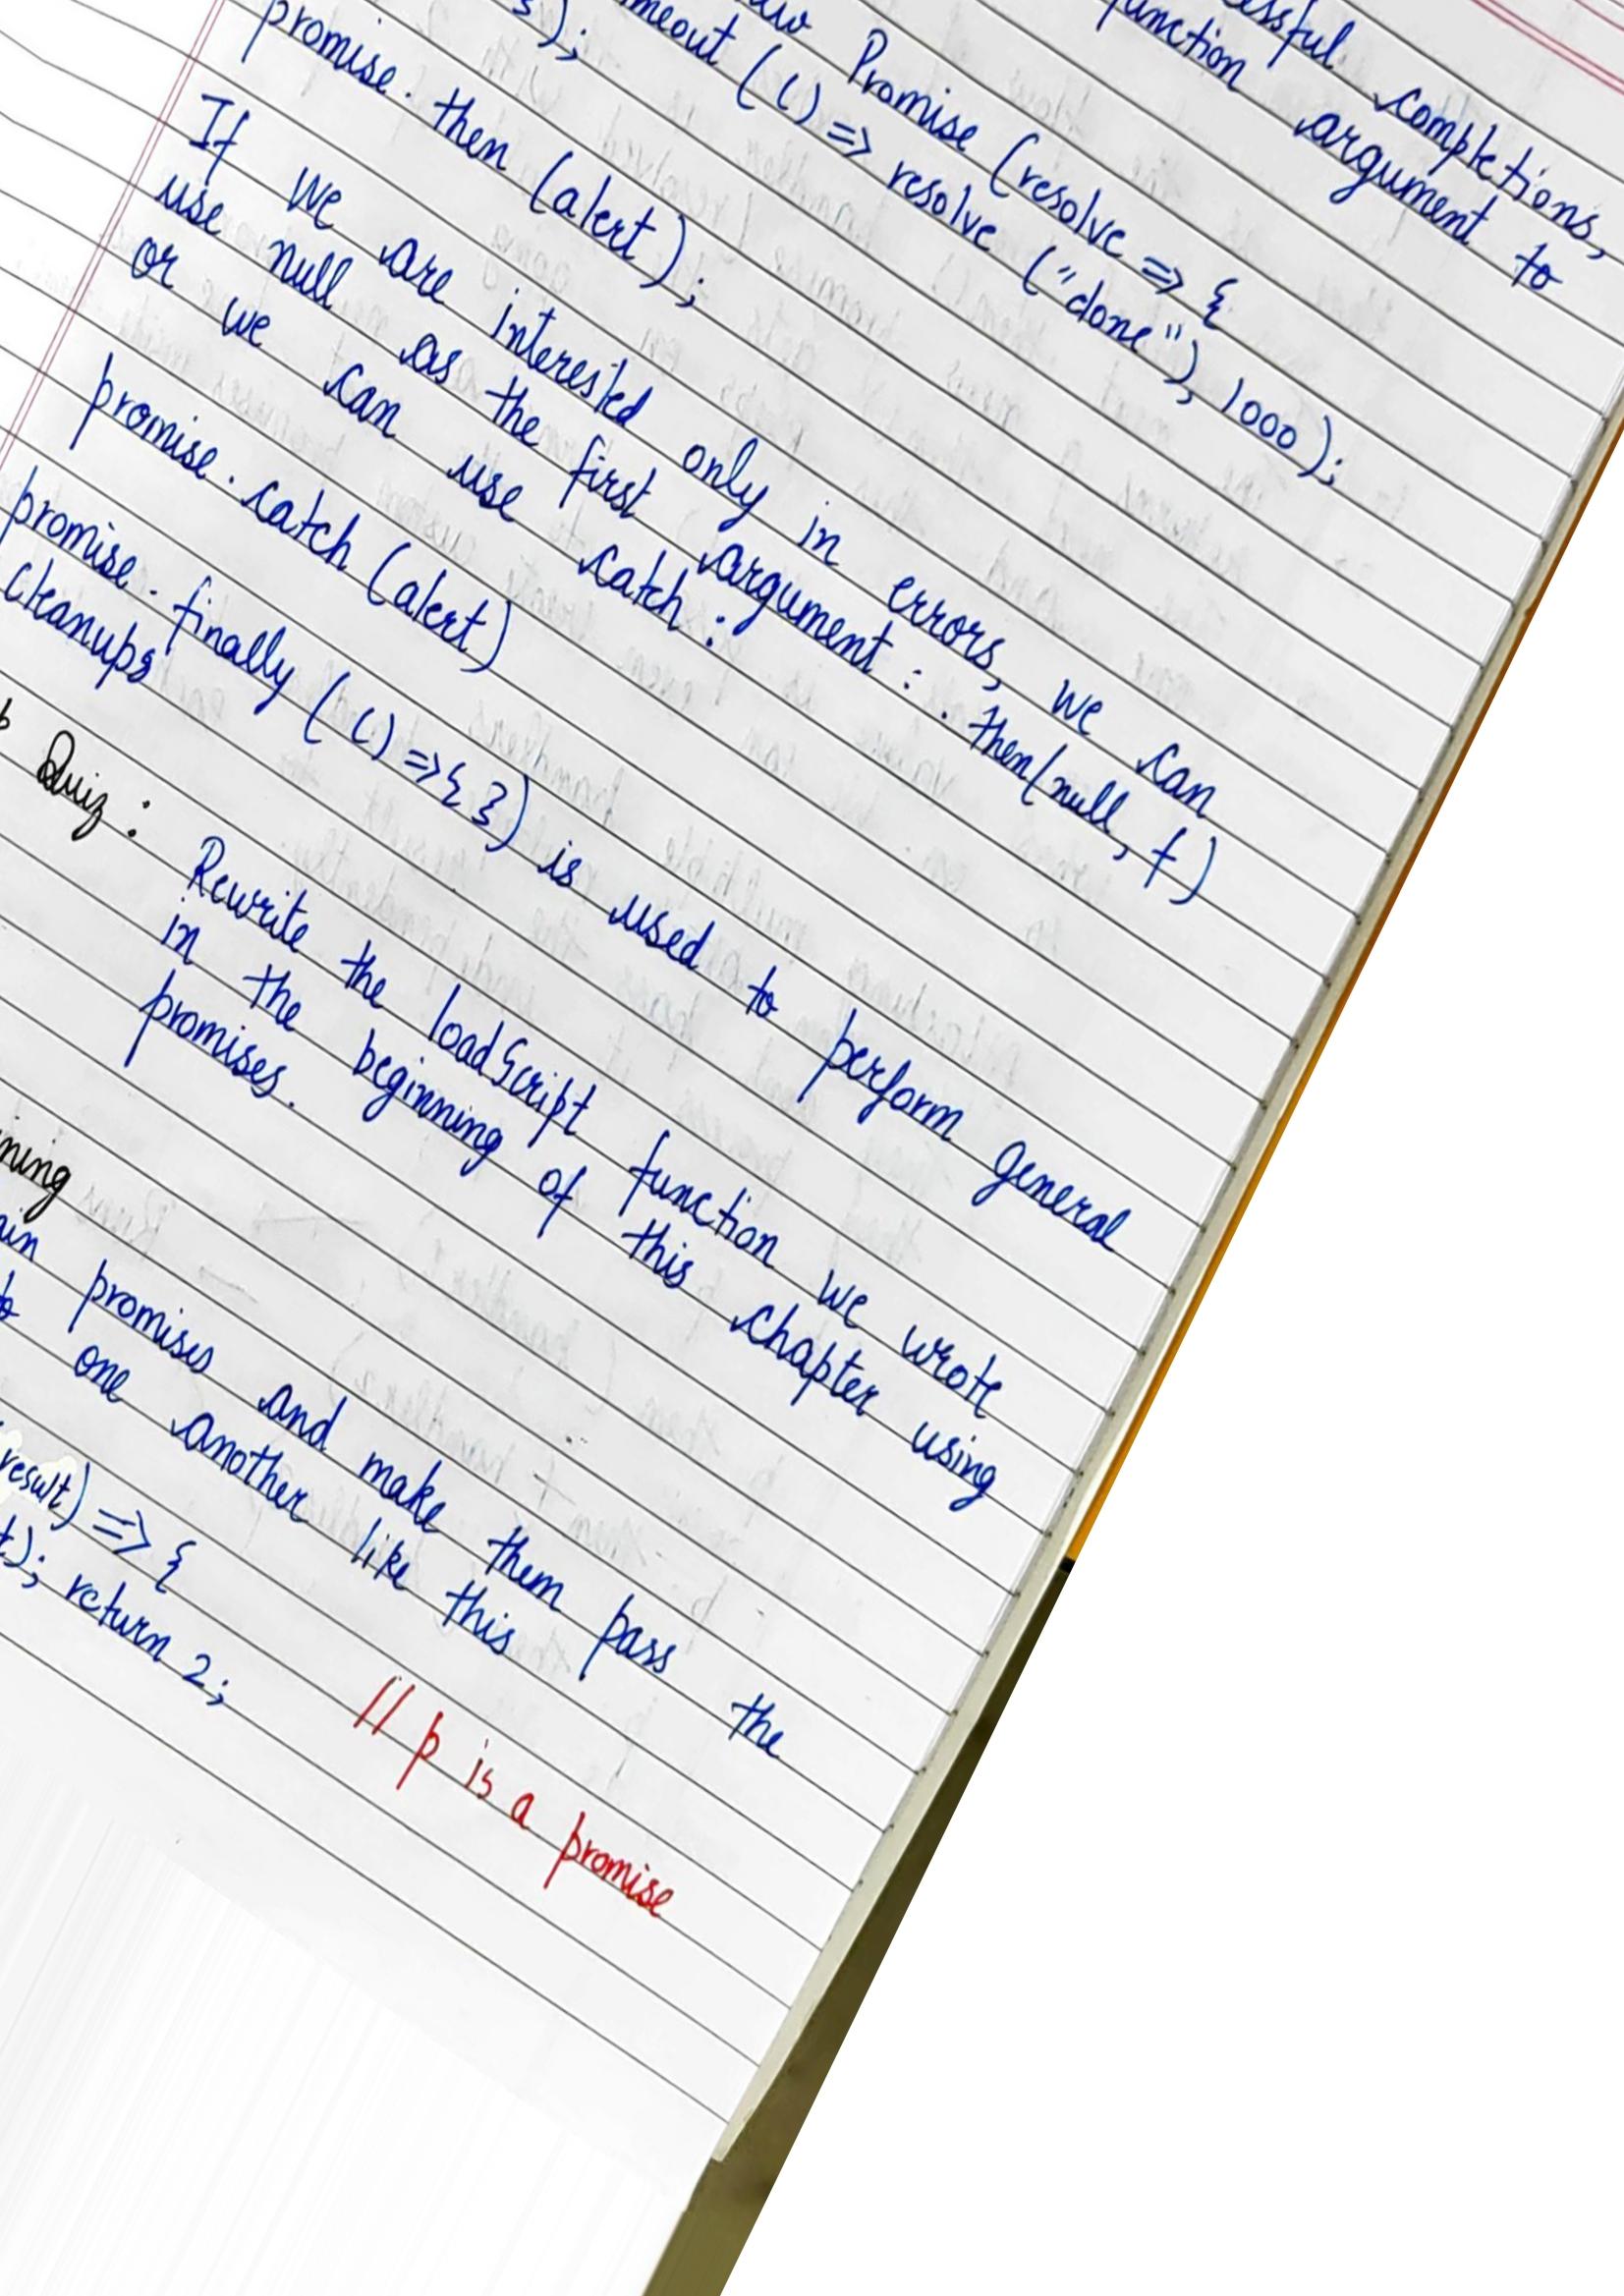 completions,
function argument to
Promise (resolve => {
(() => resolve ("done"), 1000);
});
promise. then (alert);
If we are interested only in errors, we can
use null as the first argument : . then(null, f)
or we can use catch :
promise. catch (alert)
promise. finally ( () => { }) is used to perform general
cleanups
Quiz : Rewrite the loadScript function we wrote
in the beginning of this chapter using
promises.
promises and make them pass the
one another like this .
result) => {
); return 2; // p is a promise